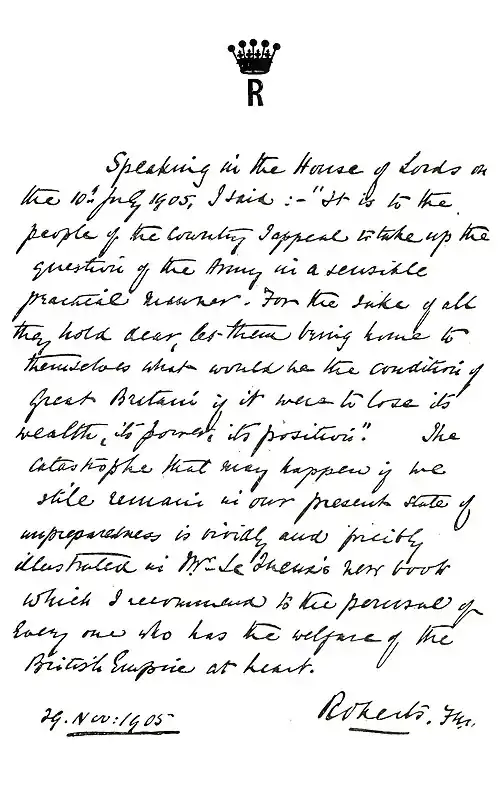 R
Speaking in the House of Lords on
the 10th July 1905, I said :- "It is to the
people of the Country I appeal to take up the
question of the Army in a sensible
practical manner. For the sake of all
they hold dear, let them bring home to
themselves what would be the condition of
Great Britain if it were to lose its
wealth, its power, its position". The
catastrophe that may happen if we
still remain in our present state of
unpreparedness is vividly and forcibly
illustrated in Mr. Le Queux's new book
which I recommend to the perusal of
every one who has the welfare of the
British Empire at heart.
29. Nov: 1905
Roberts. F.M.